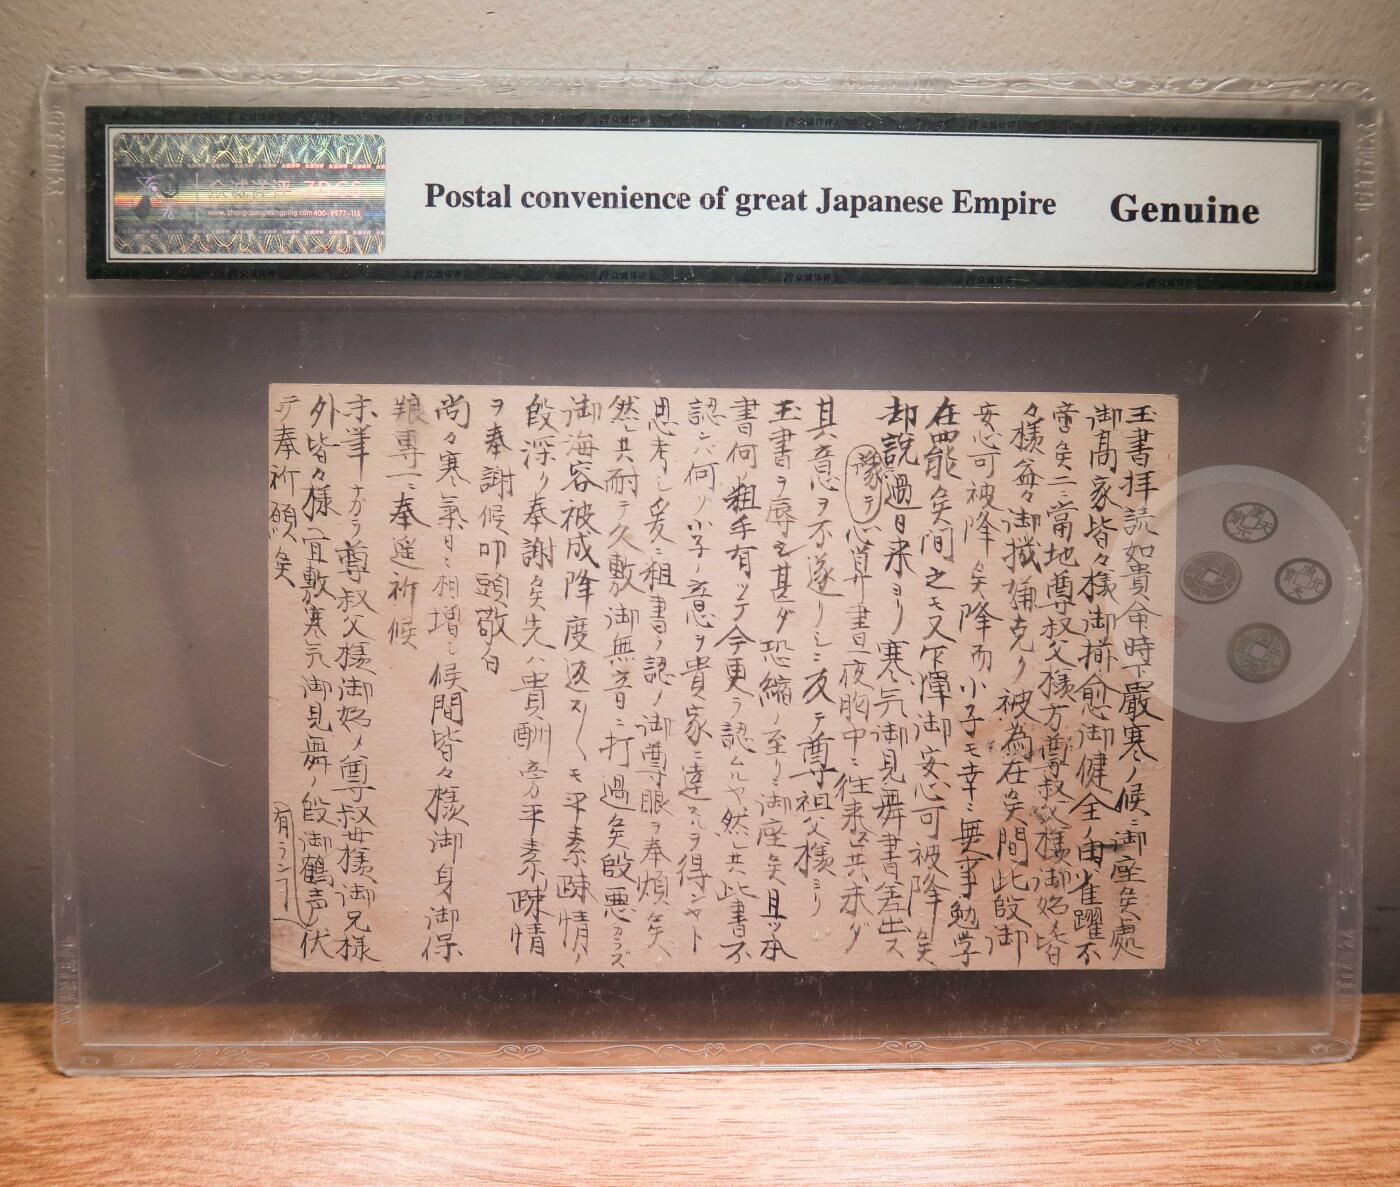 众诚评评 ZDGS
www.zhongchengpingping.com 400-9977-115
Postal convenience of great Japanese Empire
Genuine
玉書拝読如貴命時下厳寒ノ候ニ御座候處
御高家皆々様御揃愈御健全ノ由雀躍不
啻候二ニ當地尊叔父様方尊叔父様御始メ皆
々様益々御機嫌克ク被為在候間此段御
安心可被降候降而小子モ幸ニ無事勉学
在罷候間之モ又乍憚御安心可被降候
却説過日来ヨリ寒気御見舞書差出ス
豫テ心算晝夜胸中ニ往来候共未ダ
其意ヲ不遂リシニ反テ尊祖父様ヨリ
玉書ヲ辱シ甚ダ恐縮ノ至リニ御座候且ツ本
書何粗手有ッテ今更ラ認ムルヤ然シ共此書不
認ハ何ゾ小子ノ意ヲ貴家ニ達スルヲ得ンヤト
思考シ爰ニ粗書ヲ認ノ御尊眼ヲ奉煩候
然シ共耐テ久敷御無音ニ打過候段悪カラズ
御海容被成降度返ス〱モ平素疎情ノ
段深ク奉謝候先ハ貴酬旁平素疎情
ヲ奉謝候叩頭敬白
尚々寒気日ニ相増シ候間皆々様御身御保
専一ニ奉遥祈候
末筆ナガラ尊叔父様御始メ尊叔母様御兄様
外皆々様宜敷寒気御見舞ノ段御鶴声
有ランコ
伏
テ奉祈願候